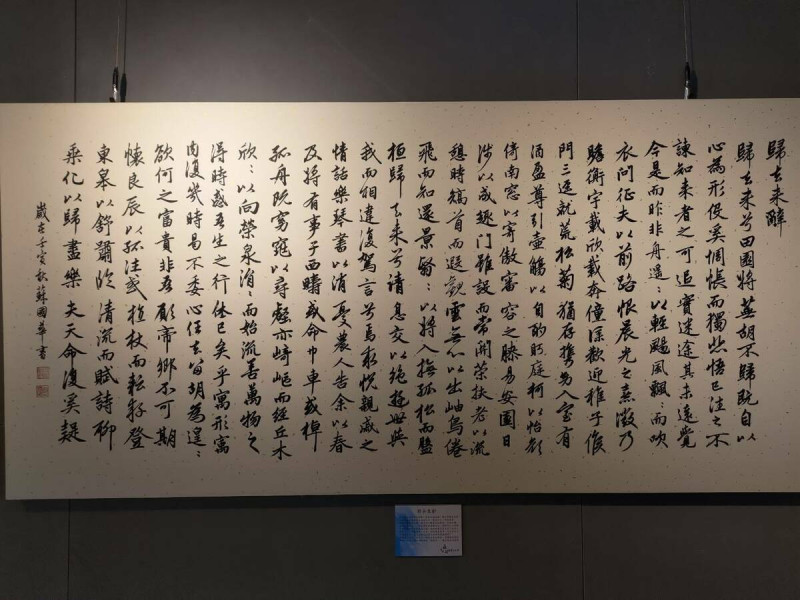 歸去來辭
歸去來兮田園將蕪胡不歸既自以
心為形役奚惆悵而獨悲悟已往之不
諫知來者之可追實迷途其未遠覺
今是而昨非舟遙:以輕颺風飄:而吹
衣問征夫以前路恨晨光之熹微乃
瞻衡宇載欣載奔僮僕歡迎稚子候
門三逕就荒松菊猶存攜幼入室有
酒盈尊引壺觴以自酌眄庭柯以怡顏
倚南窓以寄傲審容之膝易安園日
涉以成趣門雖設而常開策扶老以流
憩時矯首而遐觀雲無心以出岫鳥倦
飛而知還景翳:以將入撫孤松而盤
桓歸去來兮請息交以絕遊世與
我而相違復駕言兮焉求悅親戚之
情話樂琴書以消憂農人告余以春
及將有事于西疇或命巾車或棹
孤舟既窈窕以尋壑亦崎嶇而經丘木
欣:以向榮泉涓:而始流善萬物之
得時感吾生之行休已矣乎寓形寓
內復幾時曷不委心任去留胡為遑:
欲何之富貴非吾願帝鄉不可期
懷良辰以孤往或植杖而耘耔登
東皋以舒嘯臨清流而賦詩聊
乘化以歸盡樂夫天命復奚疑
歲在壬寅秋蘇國華書